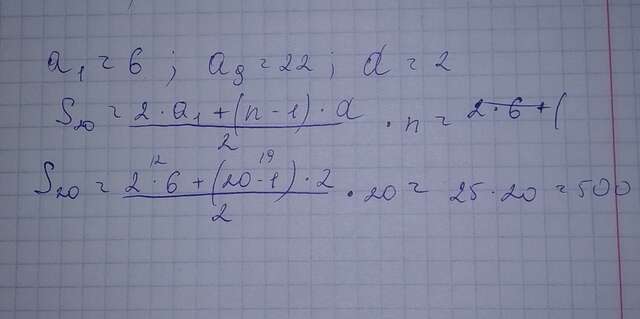 a₁ = 6 ; a₉ = 22 ; d = 2
S₂₀ = (2 · a₁ + (n - 1) · d) / 2 · n = 2 · 6 + (
12 19
S₂₀ = (2 · 6 + (20 - 1) · 2) / 2 · 20 = 25 · 20 = 500